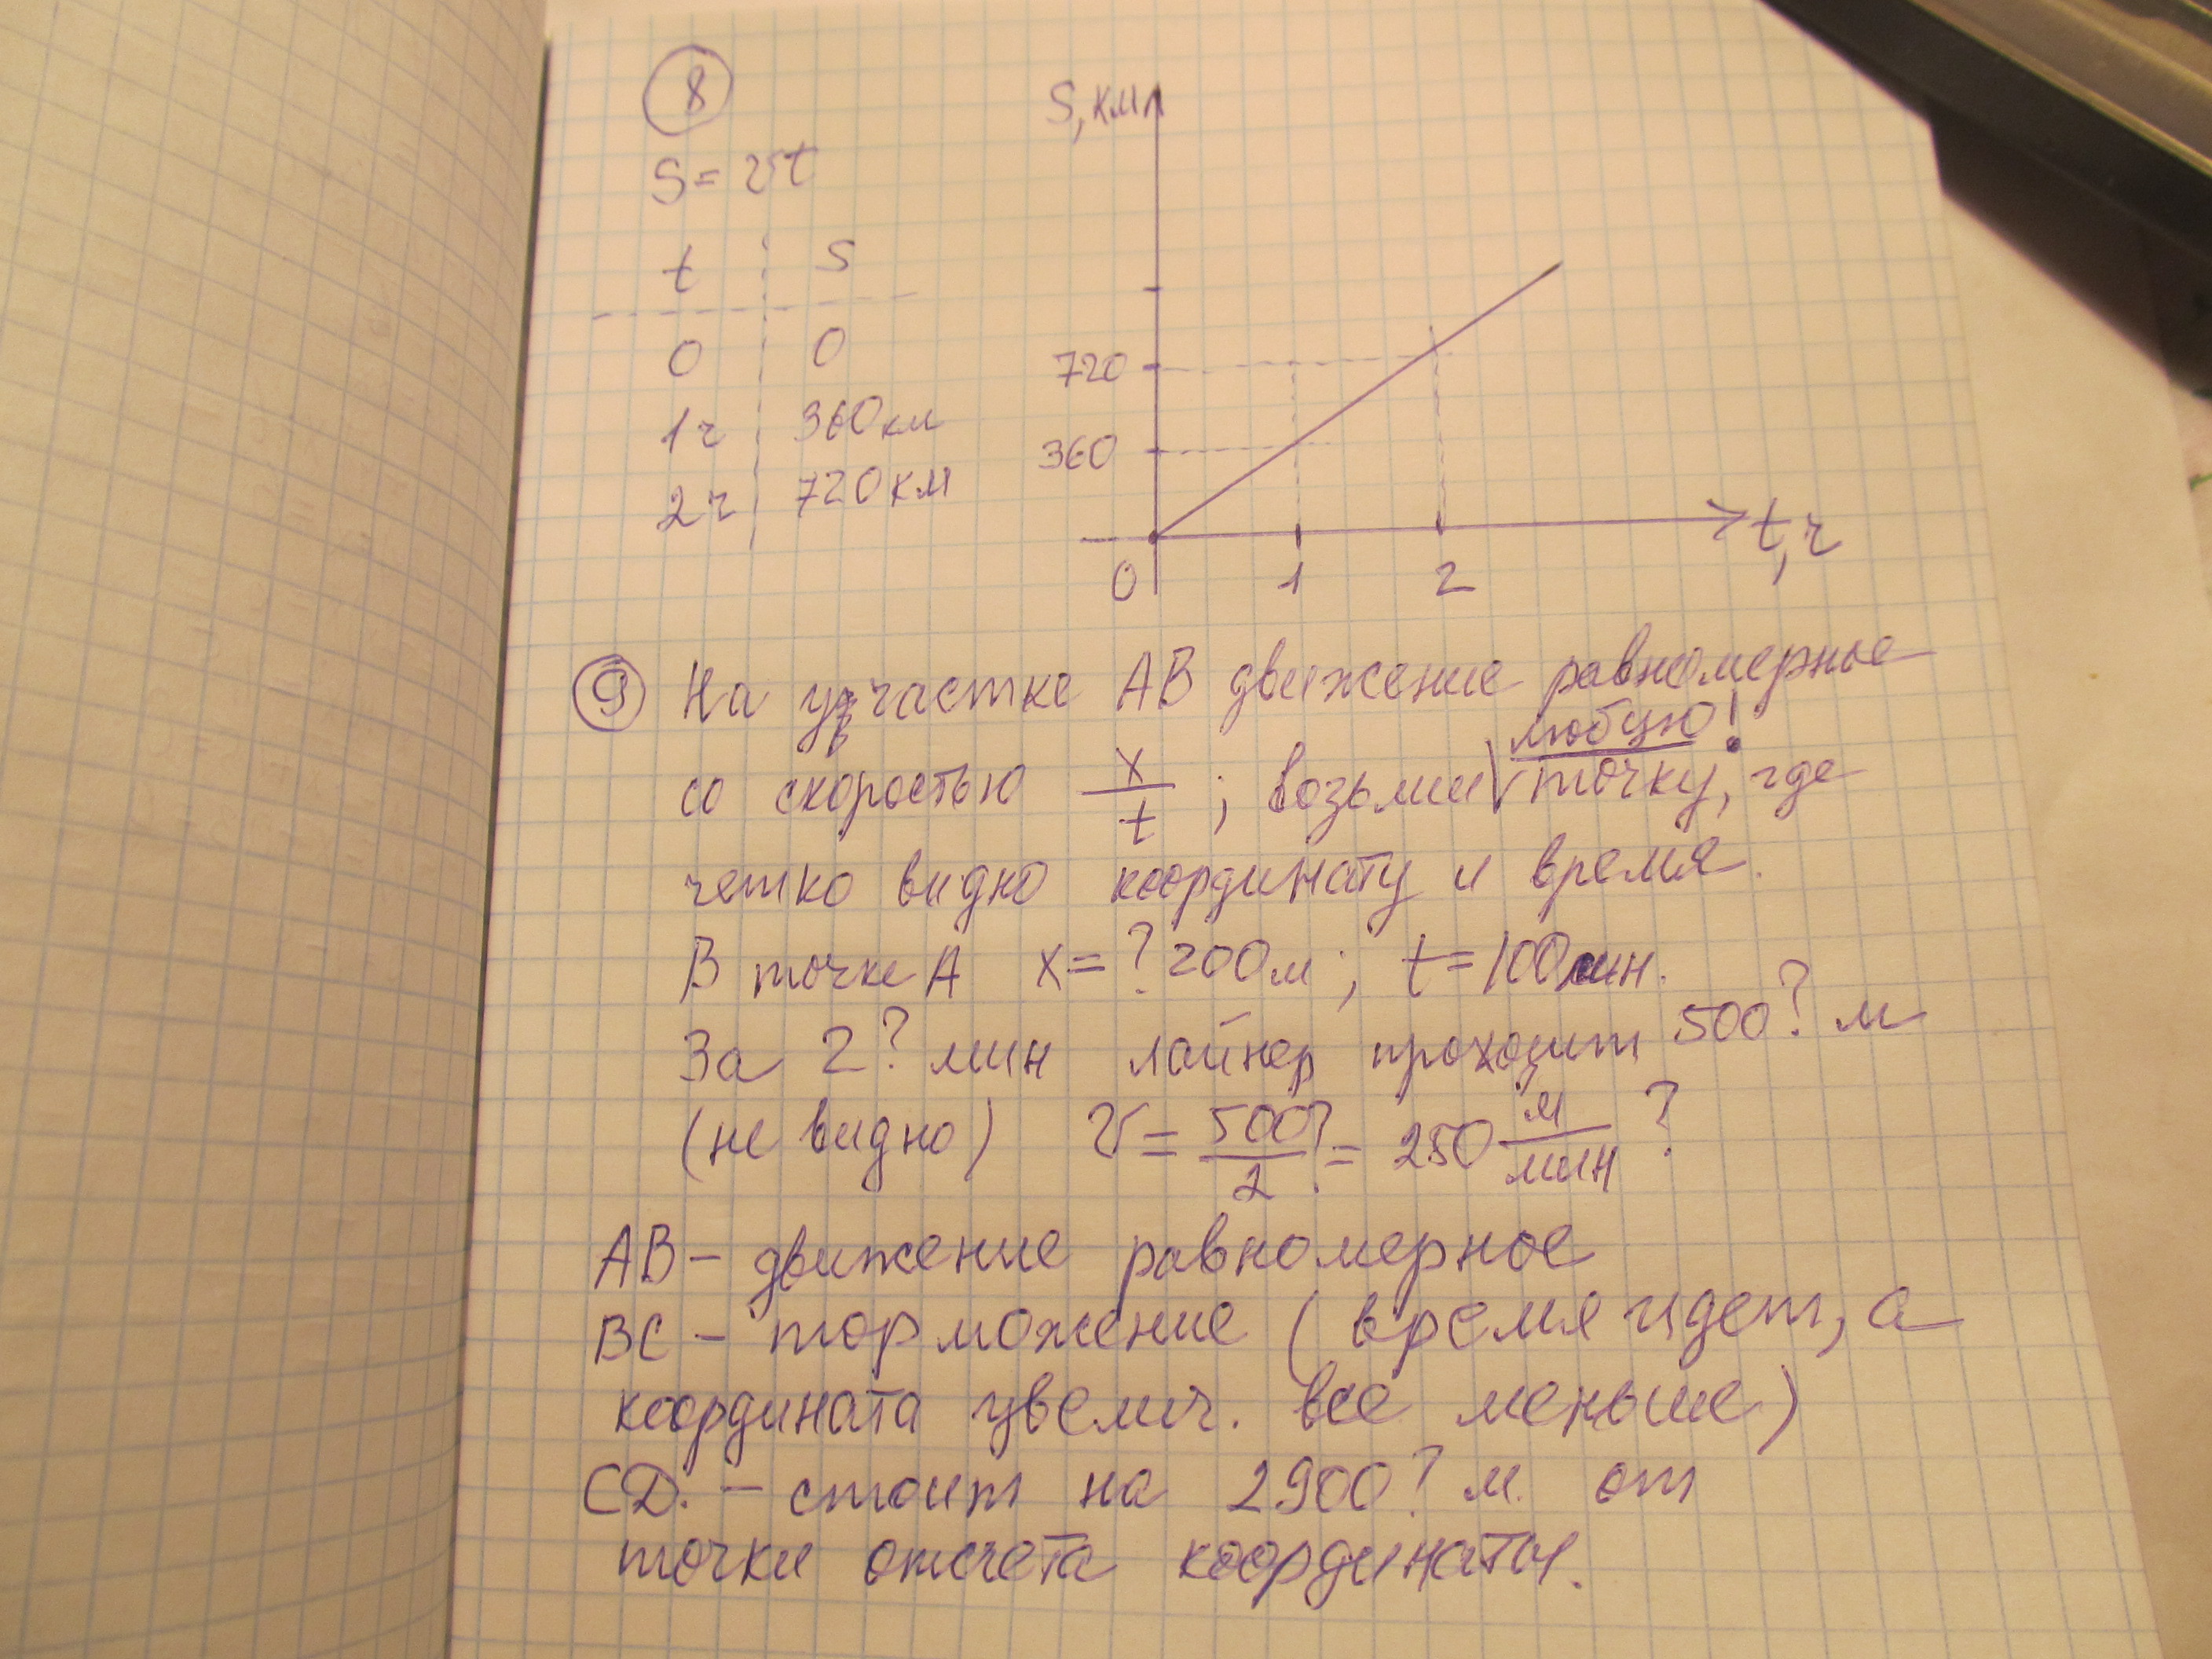 8
S = vt
t S
0 0
1ч 360 км
2ч 720 км
S, км
720
360
0 1 2 t, ч
9 На участке АВ движение равномерное
со скоростью x/t ; возьмем любую! точку, где
четко видно координату и время.
В точке А x = ? 200 м ; t = 100 мин.
За 2? мин лайнер проходит 500? м
(не видно) v = 500?/2? = 250 м/мин ?
АВ – движение равномерное
ВС – торможение (время идет, а
координата увелич. все меньше)
СД. – стоит на 2900? м. от
точки отсчета координаты.